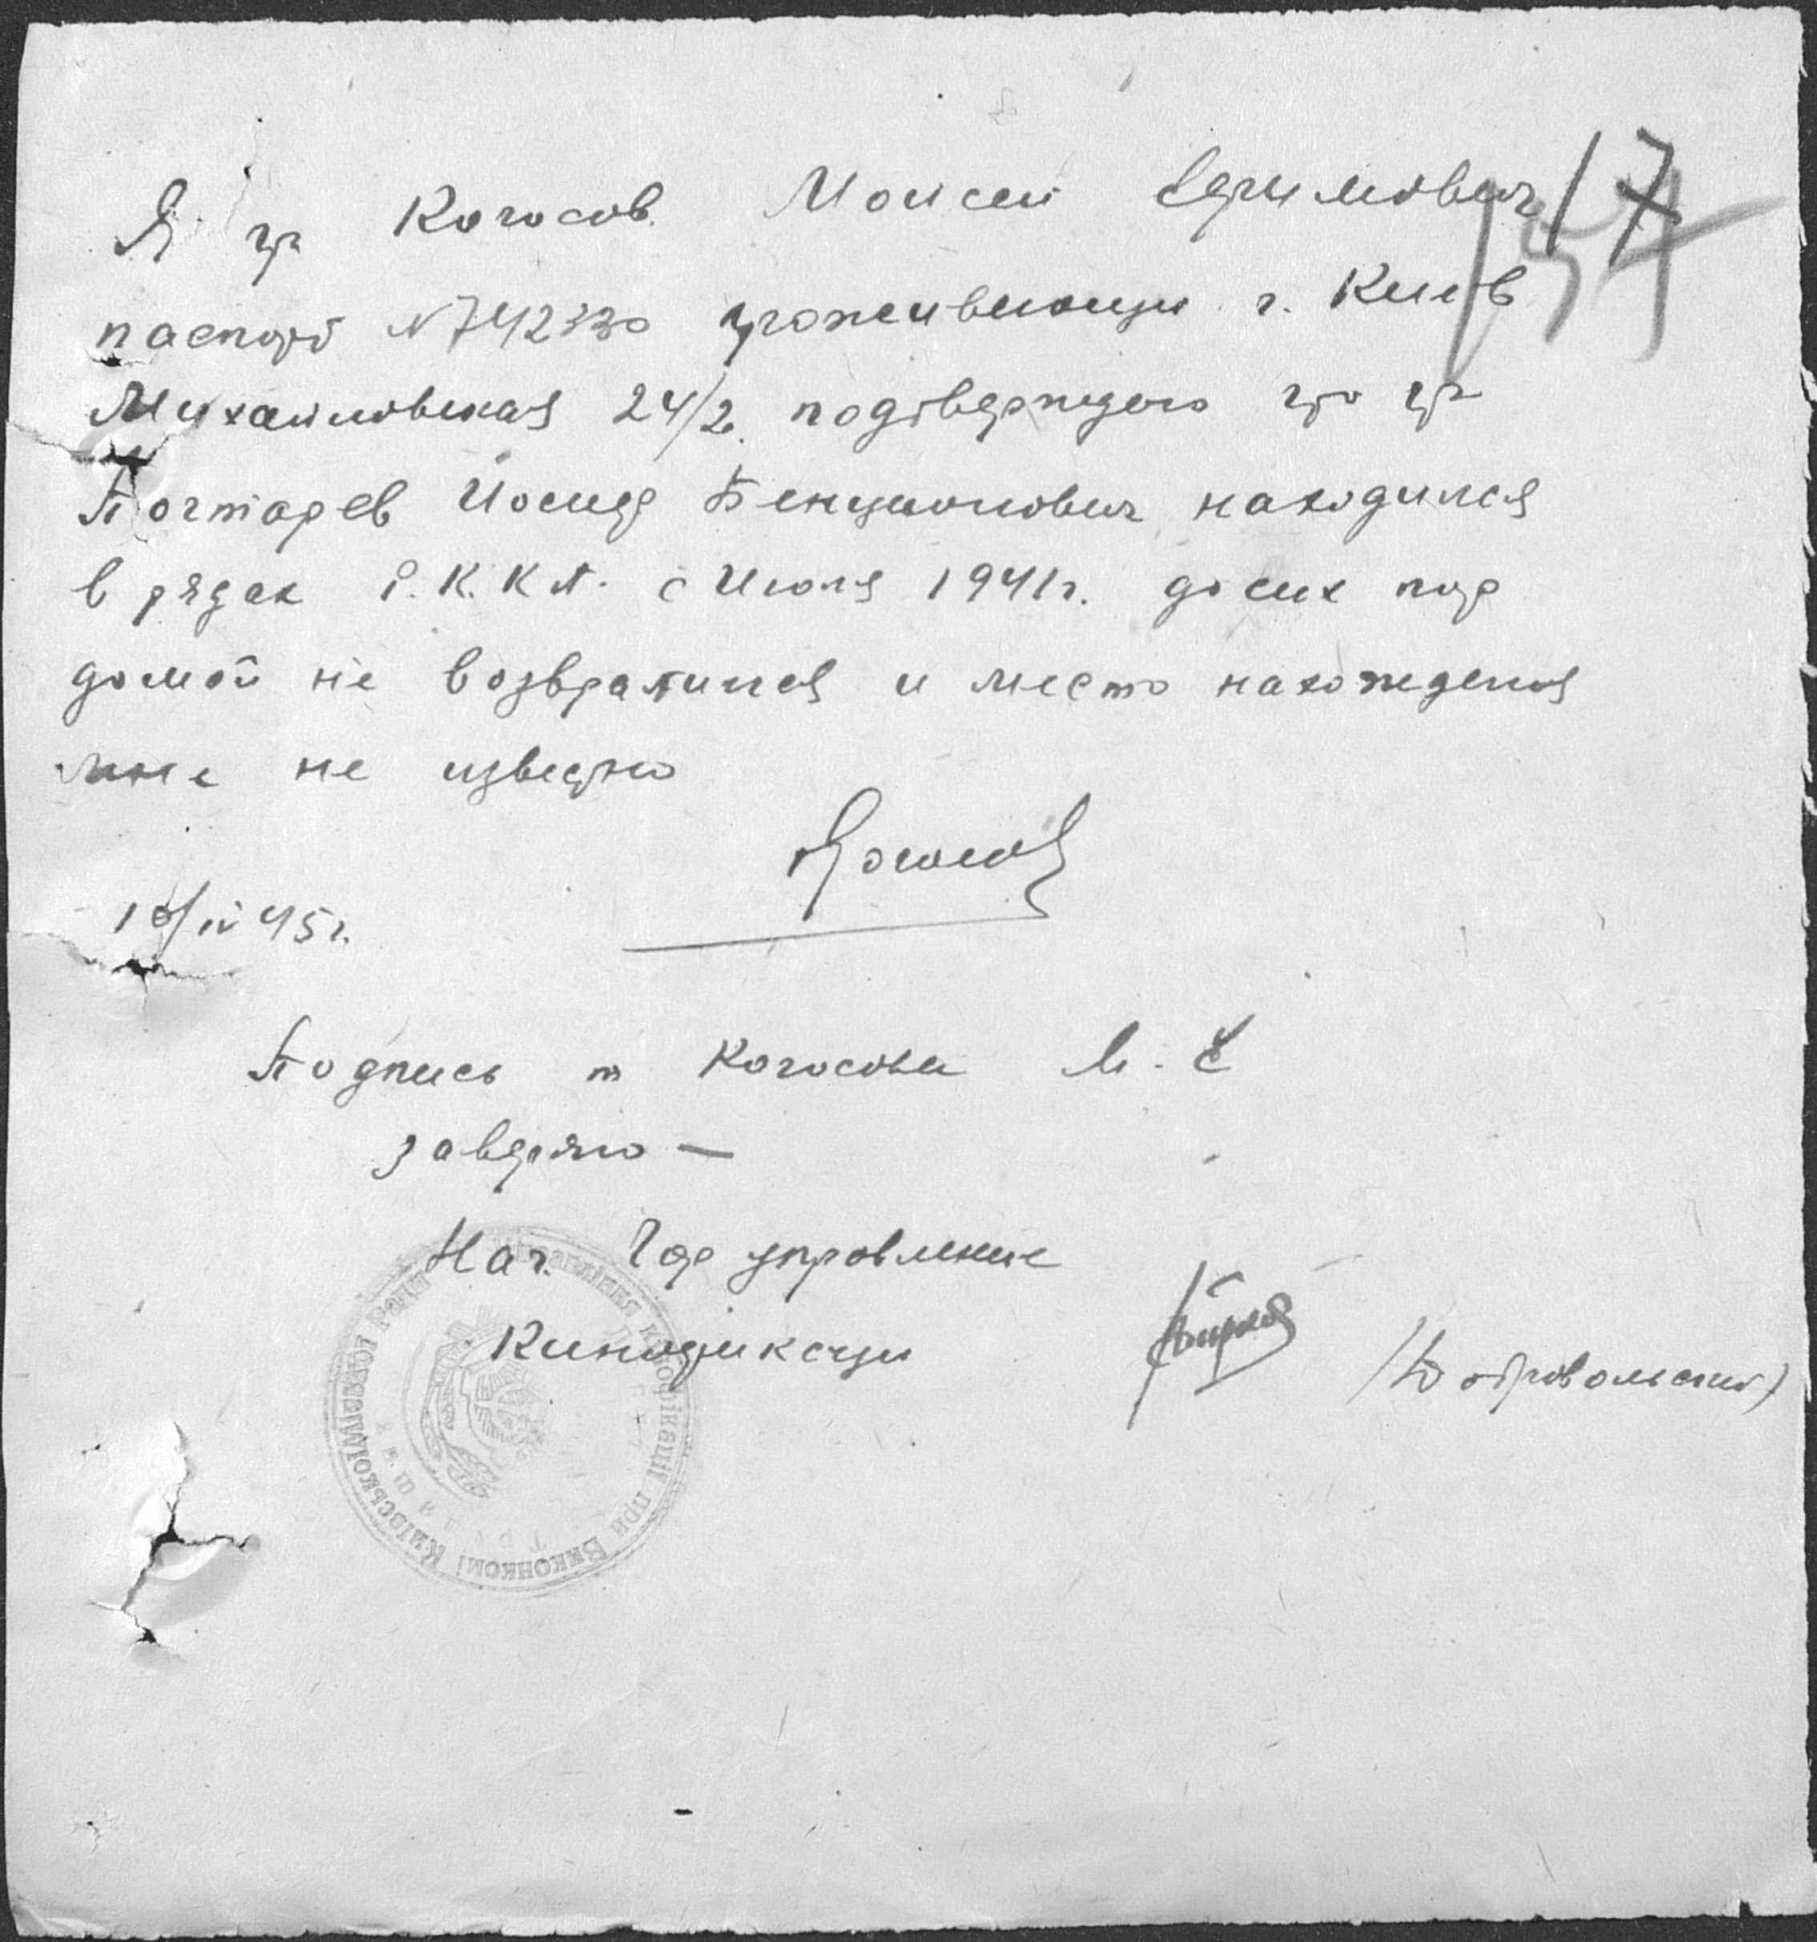 Я гр Когосов Моисей Ефимович
17
157
паспорт №742330 проживающи г. Киев
Михайловская 24/2. подтверждаю что гр
Почтарев Иосиф Бенционович находился
в рядах Р.К.К.А. с Июля 1941г. до сих пор
домой не возвратился и место нахождения
мне не известно
Когосов
18/IV 45г.
Подпись т Когосова М. Е
заверяю —
Нач. Гор управление
Кинофикации
/Добровольский)
Управління кінофікації при Виконкомі Київської Міської Ради